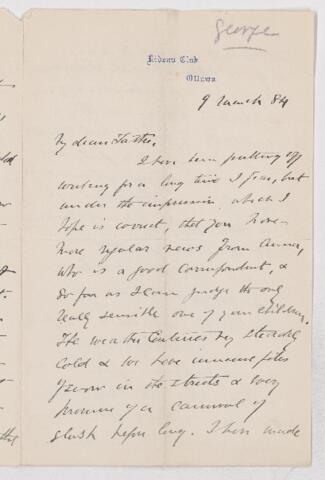 George
Rideau Club
Ottawa
9 March 84
My dear Father,
I have been putting off
writing for a long time I fear, but
under the impression, which I
hope is correct, that you have
more regular news from Anna,
who is a good correspondent, &
so far as I can judge the only
really sensible one of your children.
The weather continues very steadily
cold & we have immense piles
of snow in the streets & every
promise of a carnival of
slush before long. I have made